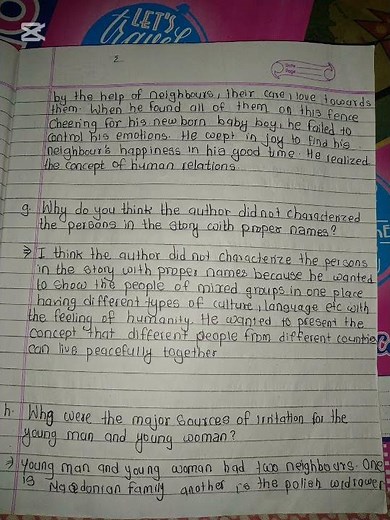 LET'S
travel
2
by the help of neighbours, their care, love towards
them. When he found all of them on this fence
cheering for his new born baby boy, he failed to
control his emotions. He wept in joy to find his
neighbour's happiness in his good time. He realized
the concept of human relations.
g. Why do you think the author did not characterized
the persons in the story with proper names?
⇒ I think the author did not characterize the persons
in the story with proper names because he wanted
to show the people of mixed groups in one place
having different types of culture, language etc with
the feeling of humanity. He wanted to present the
concept that different people from different counties
can live peacefully together
h. Why were the major sources of irritation for the
young man and young woman?
⇒ Young man and young woman had two neighbours. One
is Macedonian family another is the polish widrower